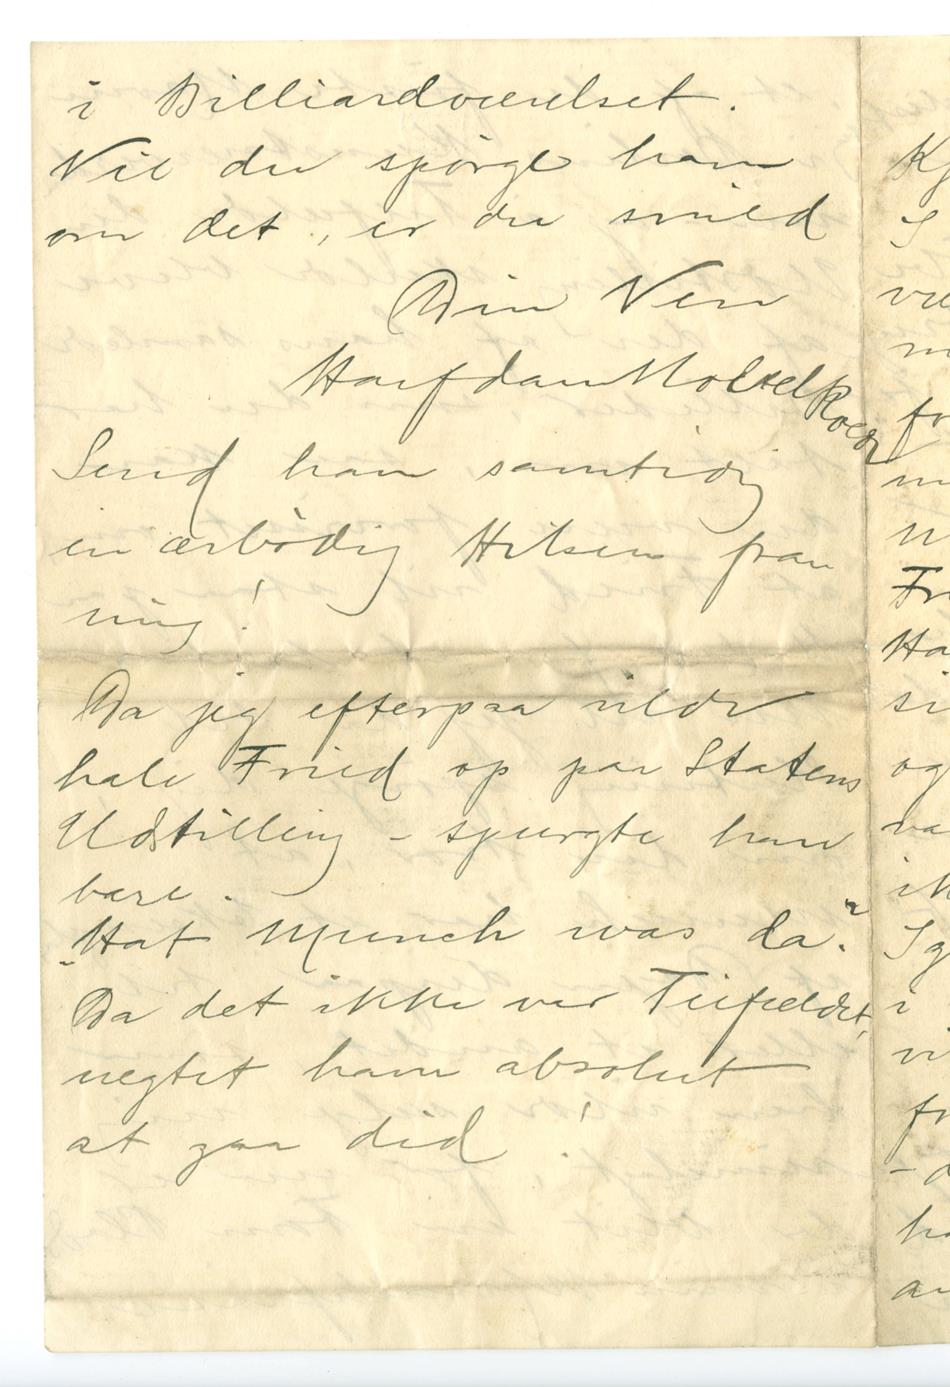 i Billiardværelset.
Vil du spörge ham
om det, er du snild
Din Ven
Halfdan Nobel Roede
Send ham samtidig
en ærbödig Hilsen fran
mig!
Da jeg efterpaa vilde
hale Fried op paa Statens
Udstilling – spurgte han
bare.
"Hat Munch was da"?
Da det ikke var Tilfældet,
negtet ham absolut
at gaa did!
Kj
S
m
fo
m
Fri
Ha
si
og
va
ik
Ig
i
vi
fr
– d
ha
an